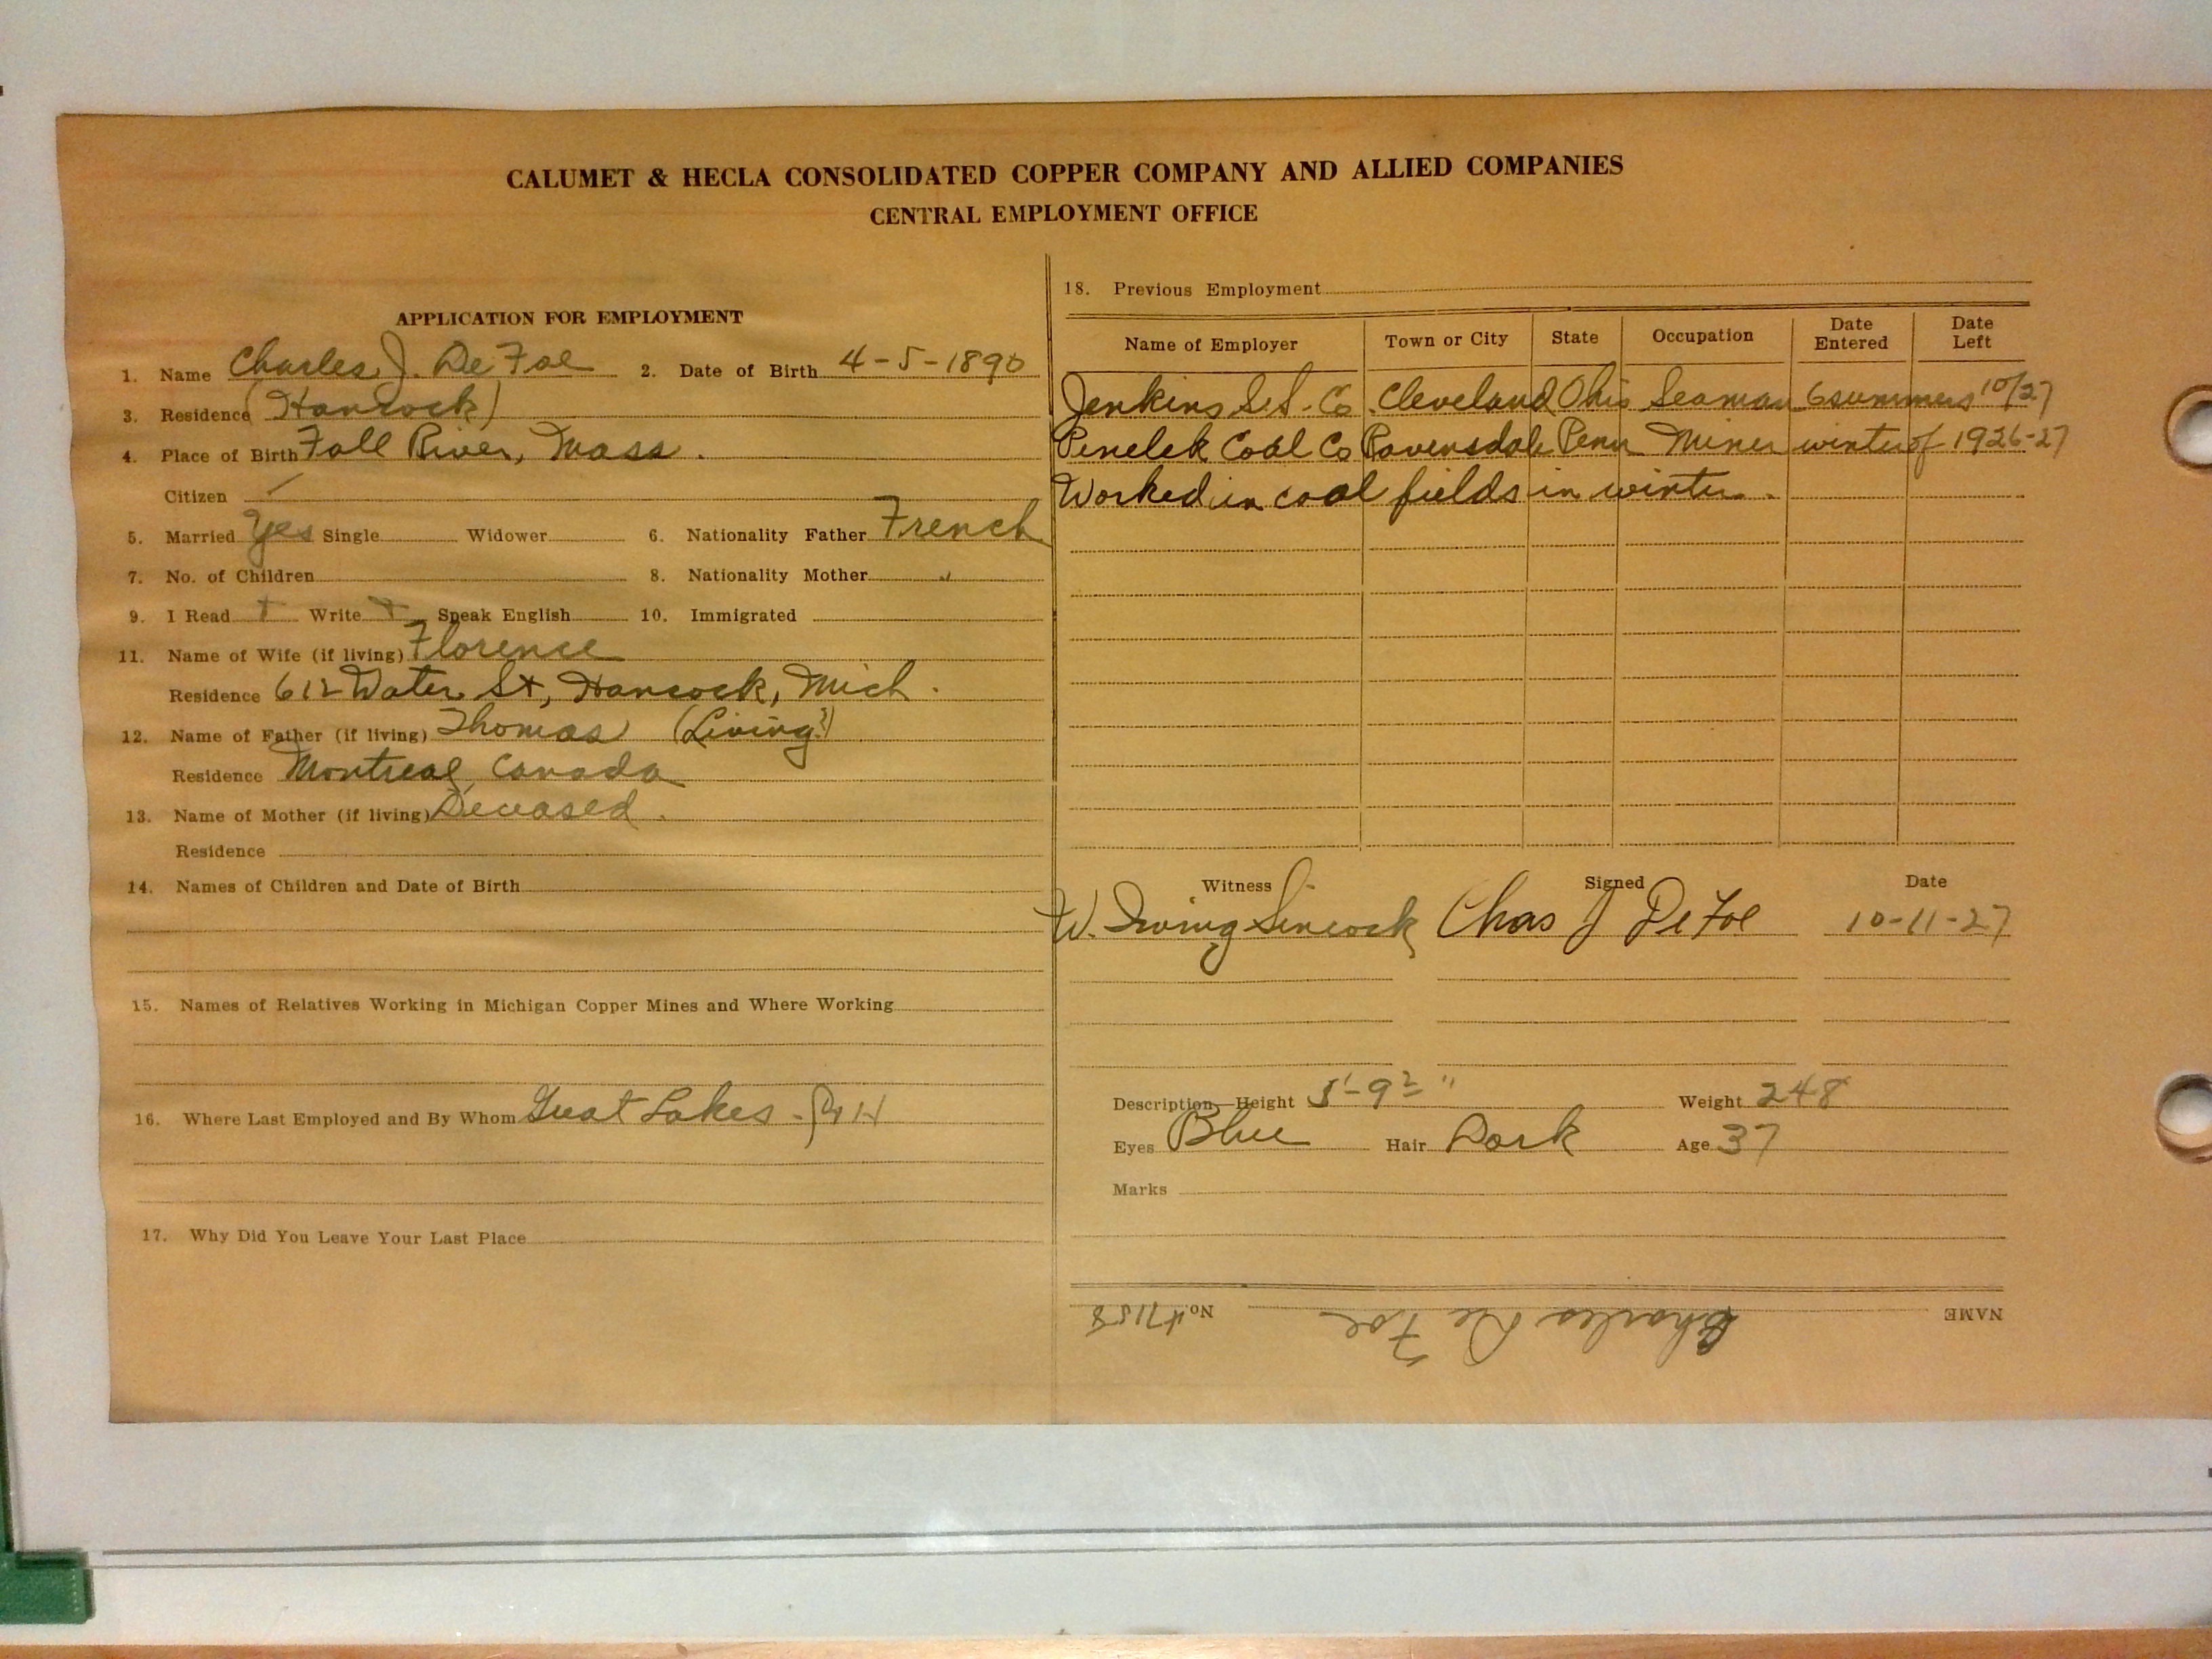 CALUMET & HECLA CONSOLIDATED COPPER COMPANY AND ALLIED COMPANIES
CENTRAL EMPLOYMENT OFFICE
APPLICATION FOR EMPLOYMENT
1. Name Charles J. De Foe 2. Date of Birth 4-5-1890
3. Residence (Hancock)
4. Place of Birth Fall River, Mass.
Citizen ✓
5. Married Yes Single Widower 6. Nationality Father French
7. No. of Children 8. Nationality Mother "
9. I Read + Write + Speak English 10. Immigrated
11. Name of Wife (if living) Florence
Residence 612 Water St, Hancock, Mich.
12. Name of Father (if living) Thomas (Living?)
Residence Montreal, Canada
13. Name of Mother (if living) Deceased.
Residence
14. Names of Children and Date of Birth
15. Names of Relatives Working in Michigan Copper Mines and Where Working
16. Where Last Employed and By Whom Great Lakes -
17. Why Did You Leave Your Last Place
18. Previous Employment
Name of Employer Town or City State Occupation Date Entered Date Left
Jenkins S.S. Co. Cleveland Ohio Seaman 6 summers 10/27
Coal Co Penn Miner winter of 1926-27
Worked in coal fields in winter.
Witness Signed Date
W. Irving Sincock Chas J De Foe 10-11-27
Description—Height 5'-9 Weight 248
Eyes Blue Hair Dark Age 37
Marks
NAME Charles De Foe No. 47158